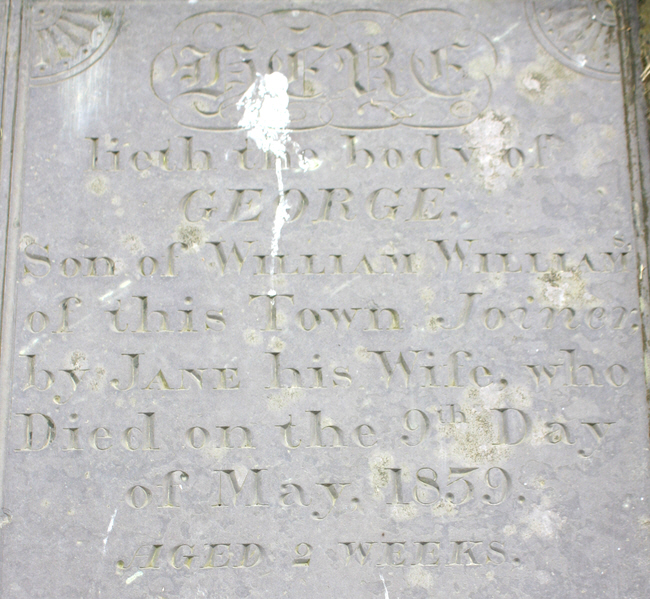 HERE
lieth the body of
GEORGE.
Son of WILLIAM WILLIAMS
of this Town Joiner,
by JANE his Wife, who
Died on the 9th Day
of May, 1839.
AGED 2 WEEKS.